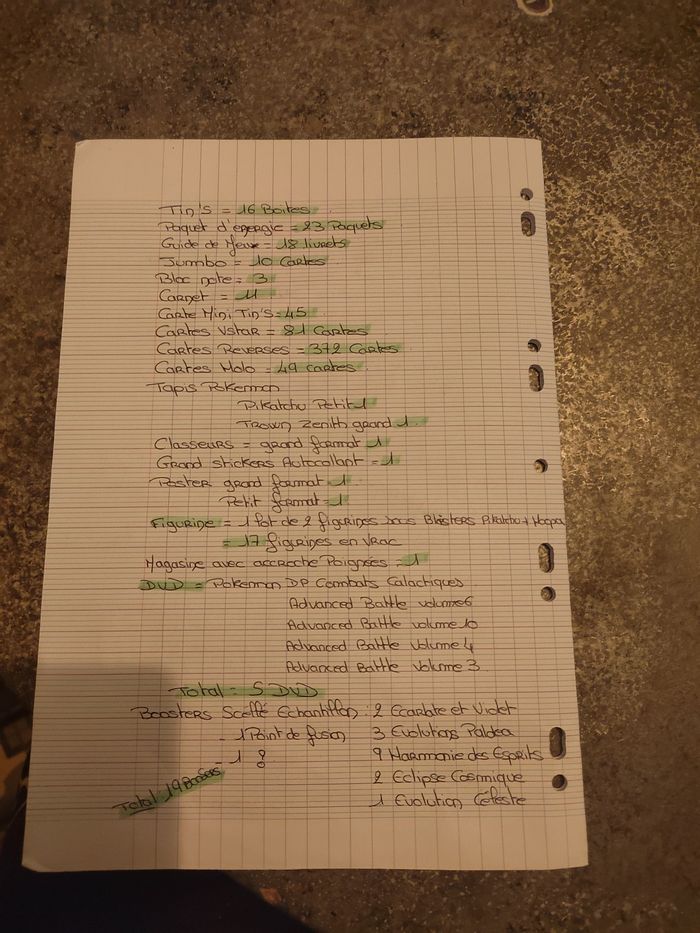 Tin's = 16 Boites
Paquet d'energie = 23 Paquets
Guide de Jeux = 18 livrets
Jumbo = 10 Cartes
Bloc note = 3
Carnet = 11
Carte Mini Tin's = 45
Cartes Vstar = 81 Cartes
Cartes Reverses = 372 Cartes
Cartes Holo = 49 cartes
Tapis Pokemon
Pikatchu Petit 1
Trown Zenith grand 1
Classeurs = grand format 1
Grand stickers Autocollant = 1
Poster grand format 1
Petit format = 1
Figurine = 1 lot de 2 figurines sous Blisters Pikatchu + Hoopa
= 17 figurines en vrac
Magasine avec accroche Poignées = 1
DVD = Pokemon DP Combats Galactiques
Advanced Battle volume 6
Advanced Battle volume 10
Advanced Battle volume 4
Advanced Battle volume 3
Total = 5 DVD
Boosters Scellé Echantillon : 2 Ecarlate et Violet
- 1 Point de fusion 3 Evolutions Paldea
- 1 ? 9 Harmonie des Esprits
2 Eclipse Cosmique
Total 19 Boosters 1 Evolution Céleste